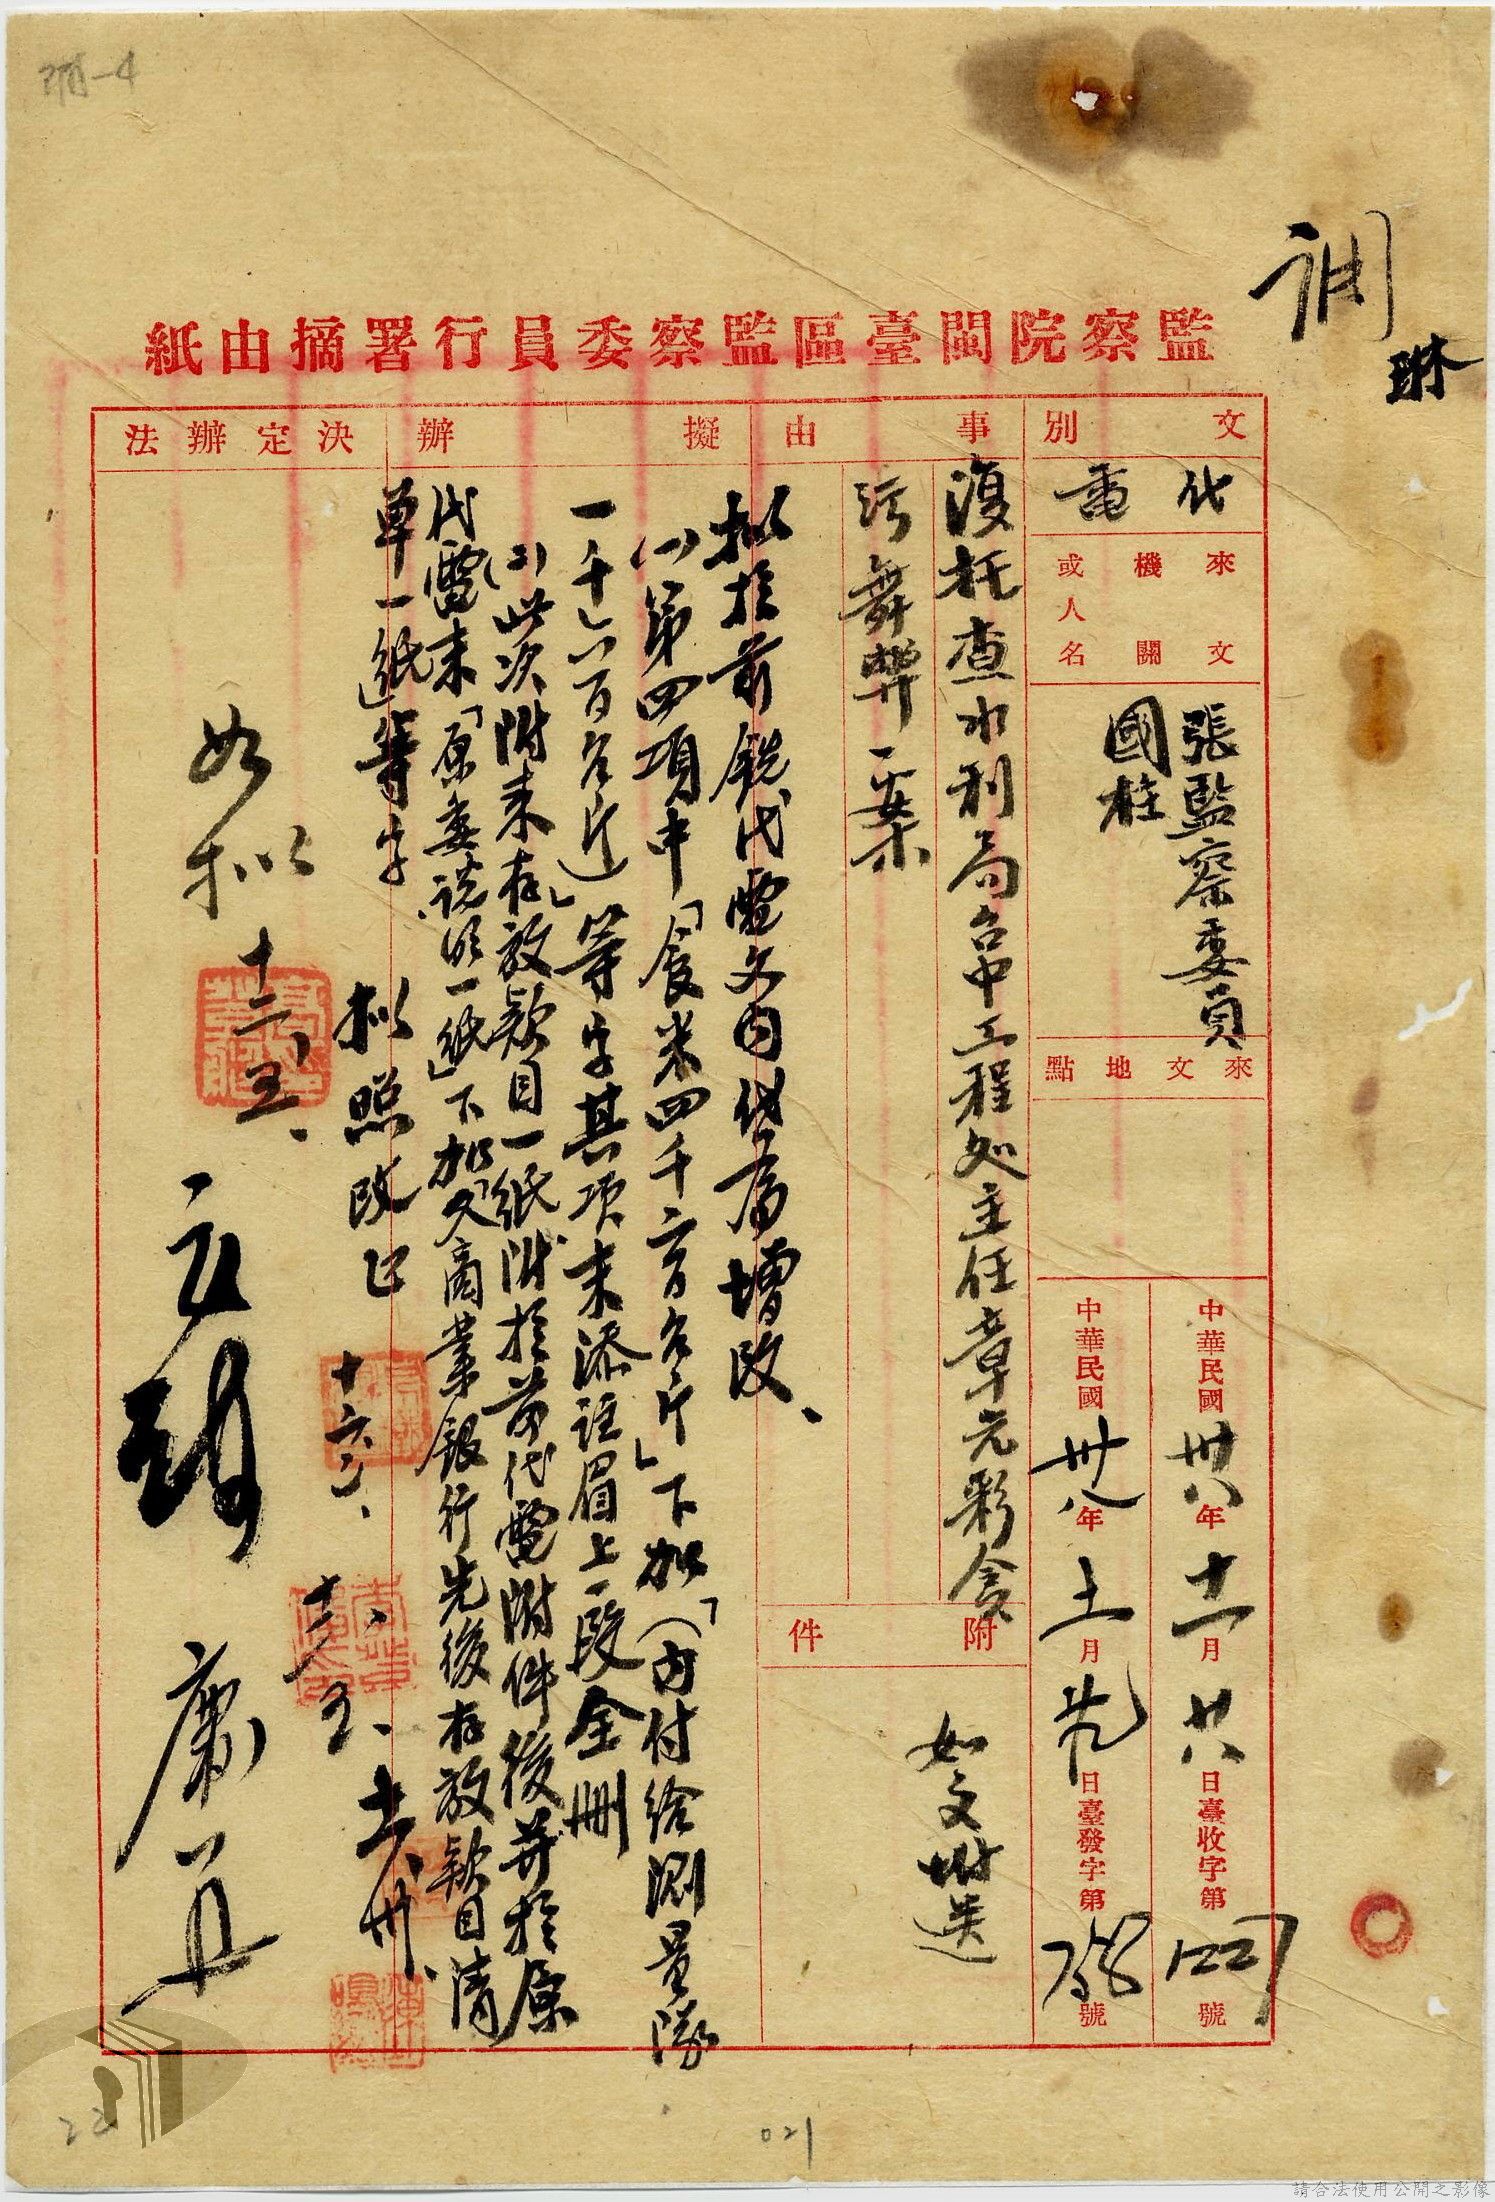 調
琳
監察院閩臺區監察委員行署摘由紙
文別
代電
來文機關或人名
張監察委員
國柱
來文地點
中華民國卅八年十一月廿八日臺收字第1227號
中華民國卅八年十一月廿九日臺發字第號
事由
復托查水利局台中工程处主任章元彩貪
污舞弊一案
附件
如文附送
擬辦
拟於前銑代電文內供爲增改、
(一)第四項中「食米四千二百台斤」下加「(內付給測量隊
一千六百台斤)」等字其項末添註眉上一段全刪
(2)此次附来存放款目一紙附於前代電附件後并於原
代電末「原委說明一紙」下加「又商業銀行先後存放款目清
單一紙」等字
拟照改正
十六、
決定辦法
如拟
十二、五、
021
請合法使用公開之影像